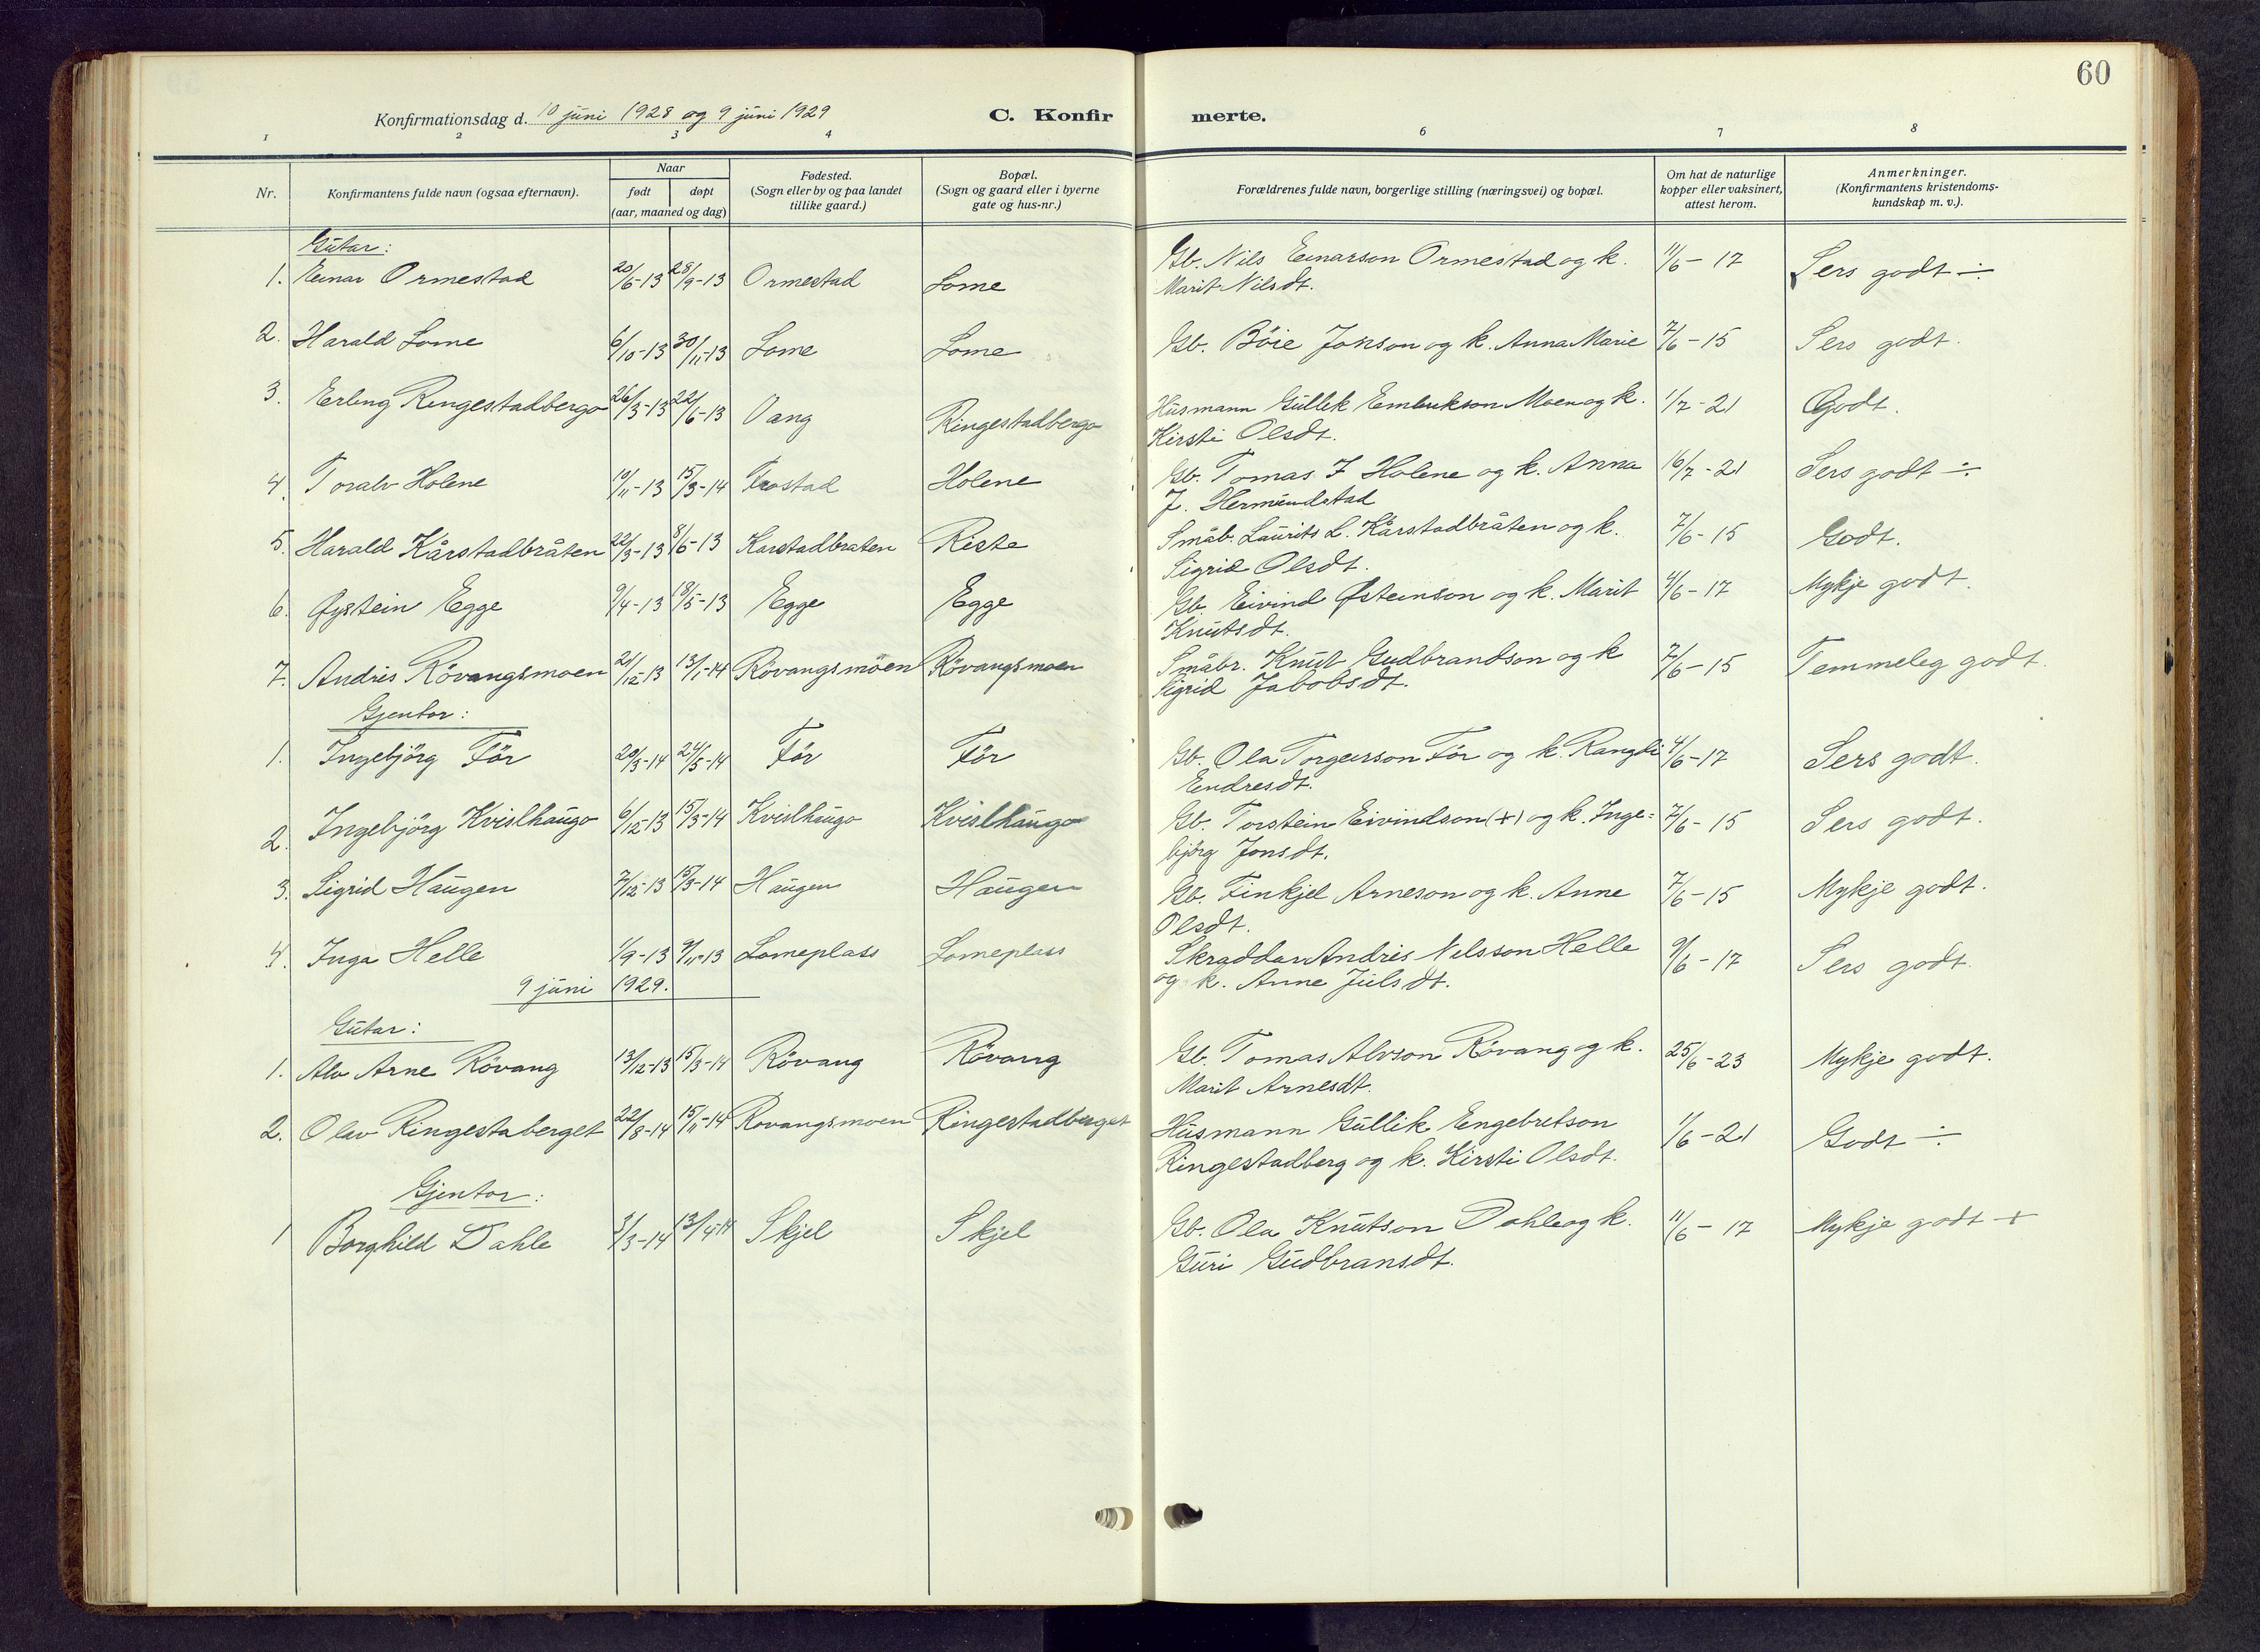 60
Konfirmationsdag d. 10 juni 1928 og 9 juni 1929 C. Konfirmerte.
1 2 3 4 6 7 8
Nr. Konfirmantens fulde navn (ogsaa efternavn). Naar født døpt (aar, maaned og dag) Fødested. (Sogn eller by og paa landet tillike gaard.) Bopæl. (Sogn og gaard eller i byerne gate og hus-nr.) Forældrenes fulde navn, borgerlige stilling (næringsvei) og bopæl. Om hat de naturlige kopper eller vaksinert, attest herom. Anmerkninger. (Konfirmantens kristendomskundskap m. v.).
Gutar:
1. Einar Ormestad 20/6-13 28/9-13 Ormestad Lome Gb. Nils Einarson Ormestad og k. 11/6-17 Sers godt ÷
Marit Nilsdt.
2. Harald Lome 6/10-13 30/11-13 Lome Lome Gb. Böie Jonson og k. Anna Marie 7/6-15 Sers godt.
3. Erling Ringestadbergo 26/3-13 22/6-13 Vang Ringestadbergo Husmann Gullik Moen og k. 1/7-21 Godt.
Kirsti Olsdt.
4. Toralv Holene 10/11-13 15/3-14 Holene Gb. Tomas J Holene og k. Anna 16/7-21 Sers godt ÷
J. Hermundstad
5. Harald Kårstadbråten 22/3-13 8/6-13 Karstadbraten Riste Småb. Laurits L. Kårstadbråten og k. 7/6-15 Godt.
Sigrid Olsdt.
6. Øystein Egge 9/4-13 18/5-13 Egge Egge Gb. Eivind Østeinson og k. Marit 4/6-17 Mykje godt.
Knutsdt.
7. Andris Rövangsmoen 21/12-13 13/1-14 Rövangsmoen Rövangsmoen Småbr. Knut Gudbrandson og k 7/6-15 Temmeleg godt.
Sigrid Jabobsdt.
Gjentor:
1. Ingebjörg För 20/3-14 24/5-14 För För Gb. Ola Torgeirson För og k. Rangdi 4/6-17 Sers godt.
Endresdt.
2. Ingebjörg Kvislhaugo 6/12-13 15/3-14 Kvislhaugo Kvislhaugo Gb. Torstein Eivindson (+) og k. Inge= 7/6-15 Sers godt.
björg Jonsdt.
3. Sigrid Haugen 7/12-13 15/3-14 Haugen Haugen Gb. Finkjel Arneson og k. Anne 7/6-15 Mykje godt.
Olsdt.
4. Inga Helle 1/9-13 9/11-13 Lomeplass Lomeplass Skraddar Andris Nilsson Helle 9/6-17 Sers godt.
og k. Anne Julsdt.
9 juni 1929.
Gutar:
1. Alv Arne Rövang 13/12-13 15/3-14 Rövang Rövang Gb. Tomas Alvson Rövang og k. 25/6-23 Mykje godt.
Marit Arnesdt.
2. Olav Ringestaberget 22/8-14 15/11-14 Rovangsmoen Ringestadberget Husmann Gullik Engebretson 1/6-21 Godt ÷
Ringestadberg og k. Kirsti Olsdt.
Gjentor:
1 Borghild Dahle 3/3-14 13/4-14 Skjel Skjel Gb. Ola Knutson Dahle og k. 11/6-17 Mykje godt +
Guri Gudbransdt.